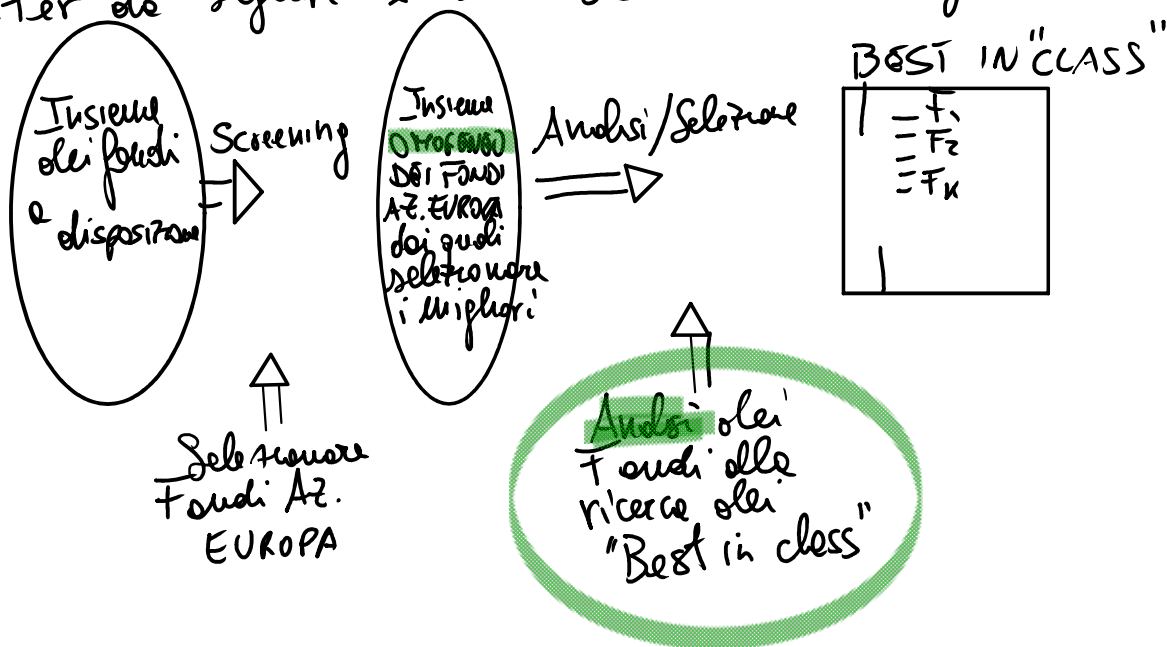 Iter da seguire
BEST IN "CLASS"
Insieme
dei fondi
a disposizione
Screening
Insieme
OMOGENEO
DEI FONDI
AZ. EUROPA
dai quali
selezionare
i migliori
Analisi/Selezione
F1
F2
FK
Selezionare
Fondi AZ.
EUROPA
Analisi dei
Fondi alla
ricerca dei
"Best in class"